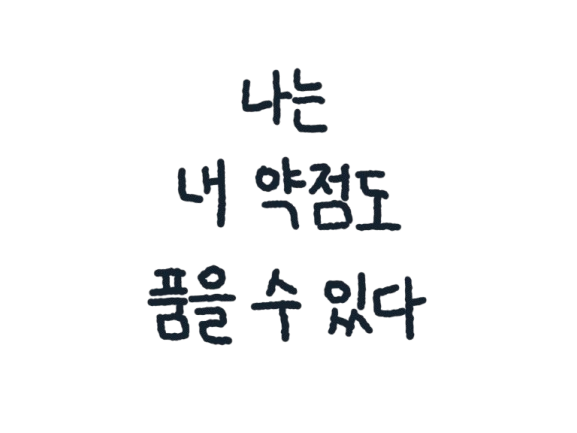 나는
내 약점도
품을 수 있다